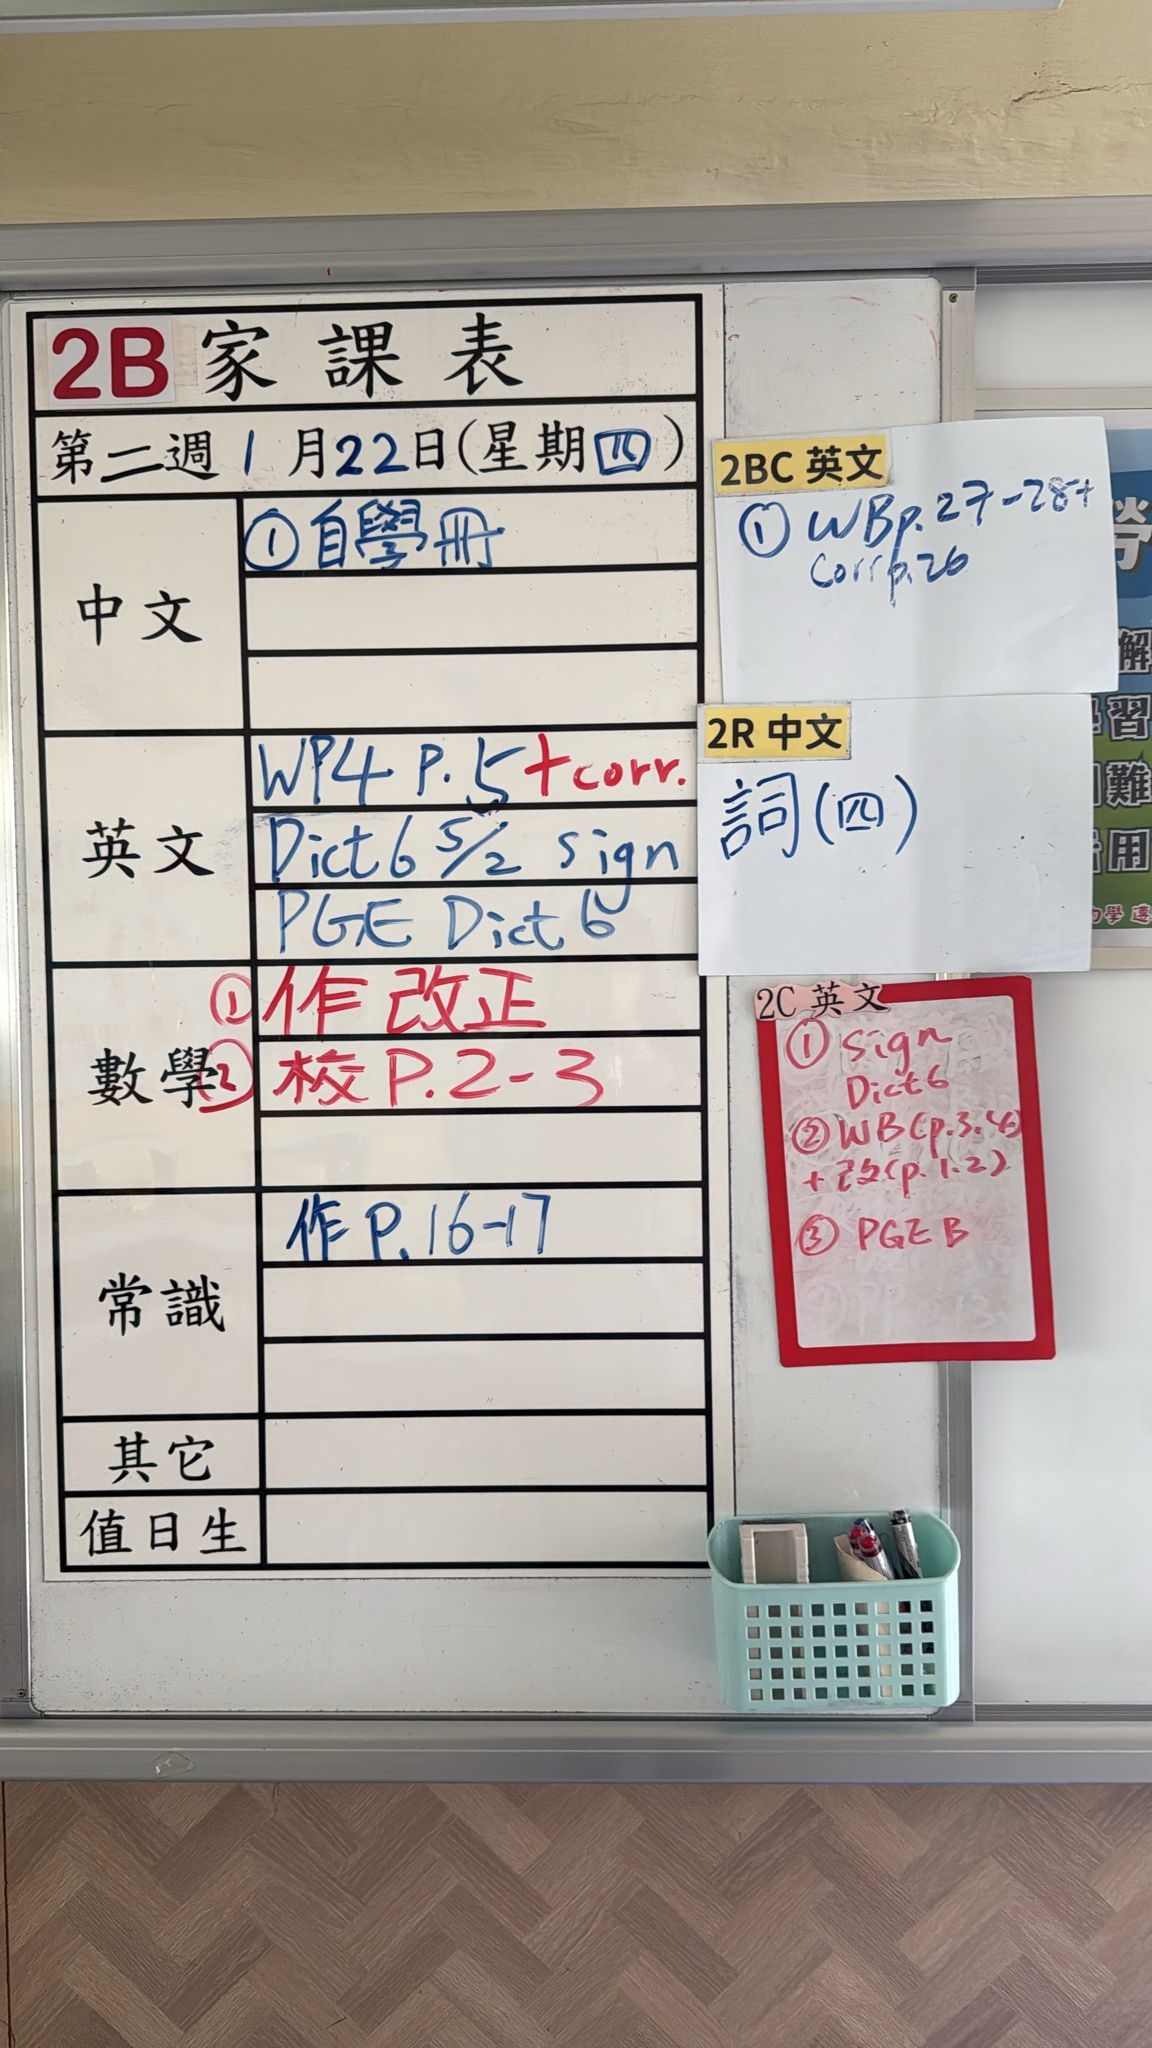 2B 家課表
第二週 1月22日(星期四)
中文
①自學冊
英文
WP4 P.5+corr.
Dict 6 5/2 sign
PGE Dict 6
數學
①作改正
②校P.2-3
常識
作P.16-17
其它
值日生
2BC 英文
① WBp.27-28+
Corr p.26
2R 中文
詞(四)
2C 英文
① Sign
Dict 6
② WB(p.3.4)
+改(p.1.2)
③ PGE B
勞
解
學習
難
用
力學